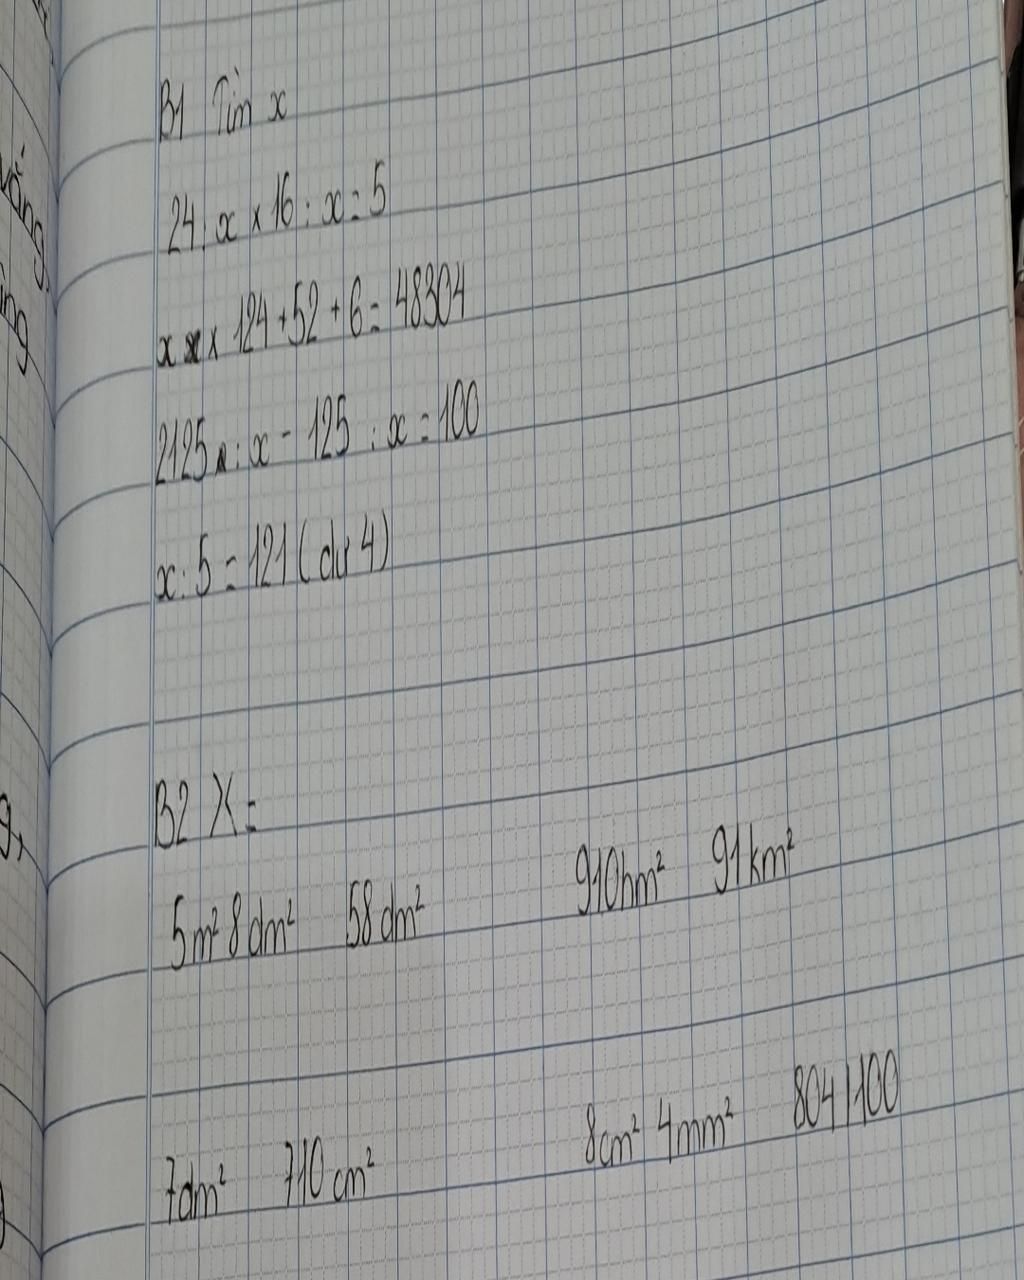 B1 Tìm x
24 : x x 16 : x = 5
x x 124 + 52 + 6 = 48304
2125 : x - 125 : x = 100
x : 5 = 121 (dư 4)
B2 X =
5m² 8dm² 58dm² 910hm² 91km²
7dm² 710cm² 8cm² 4mm² 804/100
văng,
ing
g,